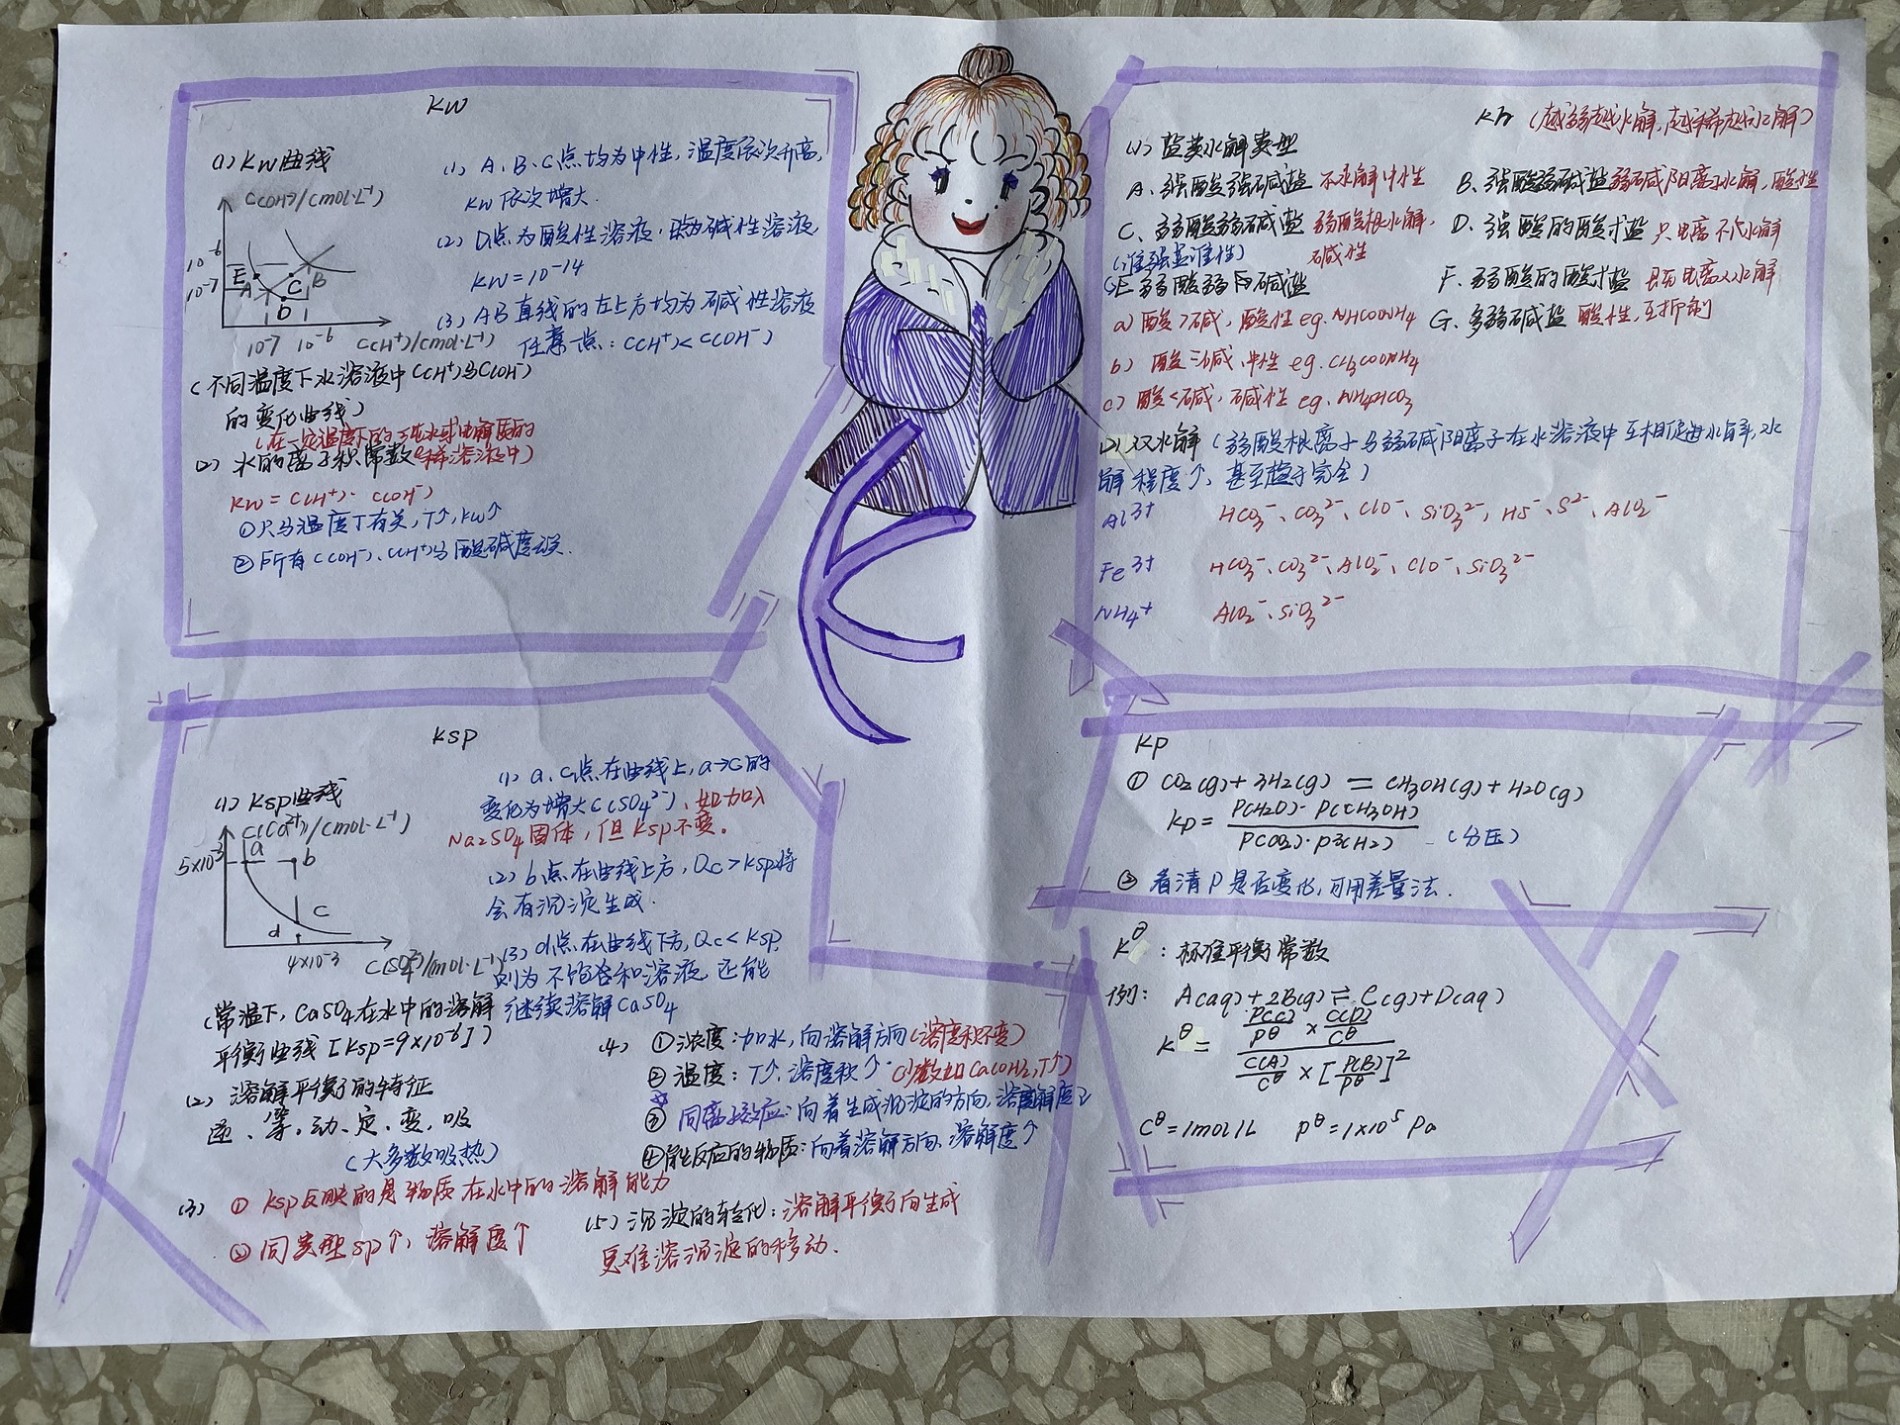 Kw
(1) Kw曲线
C(OH⁻)/(mol·L⁻¹)
10⁻⁶
10⁻⁷
E
A
B
C
D
10⁻⁷ 10⁻⁶ C(H⁺)/(mol·L⁻¹)
(不同温度下水溶液中C(H⁺)与C(OH⁻)
的变化曲线)
(1) A、B、C点均为中性,温度依次升高,
Kw依次增大.
(2) D点为酸性溶液,E点为碱性溶液,
Kw=10⁻¹⁴
(3) AB直线的左上方均为碱性溶液
任意一点:C(H⁺)<C(OH⁻)
(2) 水的离子积常数
(在一定温度下的
稀溶液中)
Kw=C(H⁺)·C(OH⁻)
①只与温度T有关,T↑,Kw↑
②所有C(OH⁻)、C(H⁺)与酸碱度
Kh (越弱越水解,越稀越水解)
(1) 盐类水解类型
A、强酸强碱盐 不水解中性
B、强酸弱碱盐 弱碱阳离子水解,酸性
C、弱酸弱碱盐 弱酸根水解,
碱性
(谁强显谁性)
D、强酸的酸式盐 只电离不水解
E 弱酸弱碱盐
F、弱酸的酸式盐 既电离又水解
a) 酸>碱,酸性 eg. NHCOONH4
G、多弱碱盐 酸性,互抑制
b) 酸=碱,中性 eg. CH3COONH4
c) 酸<碱,碱性 eg. NH4HCO3
(2) 双水解 (弱酸根离子与弱碱阳离子在水溶液中互相促进水解,水
解程度↑,甚至趋于完全)
Al³⁺ HCO3⁻、CO3²⁻、ClO⁻、SiO3²⁻、HS⁻、S²⁻、AlO2⁻
Fe³⁺ HCO3⁻、CO3²⁻、AlO2⁻、ClO⁻、SiO3²⁻
NH4⁺ AlO2⁻、SiO3²⁻
K
Ksp
(1) Ksp曲线
C(Ca²⁺)/(mol·L⁻¹)
5×10⁻³
a
b
c
d
4×10⁻³ C(SO4²⁻)/(mol·L⁻¹)
(常温下,CaSO4在水中的溶解
平衡曲线[Ksp=9×10⁻⁶])
(1) a、c点在曲线上,a→c的
变化为增大C(SO4²⁻),如加入
Na2SO4固体,但Ksp不变。
(2) b点在曲线上方,Qc>Ksp将
会有沉淀生成.
(3) d点在曲线下方,Qc<Ksp,
则为不饱和溶液,还能
继续溶解CaSO4
(2) 溶解平衡的特征
逆、等、动、定、变、吸
(大多数吸热)
(3) ①Ksp反映的是物质在水中的溶解能力
②同类型sp↑,溶解度↑
(4) ①浓度:加水,向溶解方向(溶度积不变)
②温度:T↑,溶度积↑(少数如Ca(OH)2,T↑)
③同离子效应:向着生成沉淀的方向,溶解度↓
④能反应的物质:向着溶解方向,溶解度↑
(5) 沉淀的转化:溶解平衡向生成
更难溶沉淀的移动.
Kp
① CO2(g)+3H2(g) = CH3OH(g)+H2O(g)
Kp= P(H2O)·P(CH3OH) / P(CO2)·P3(H2) (分压)
② 看清P是否变化,可用差量法.
K^θ:标准平衡常数
例: A(aq)+2B(g)⇌C(g)+D(aq)
K^θ= P(C)/P^θ × C(D)/C^θ / C(A)/C^θ × [P(B)/P^θ]²
C^θ=1mol/L P^θ=1×10⁵ Pa